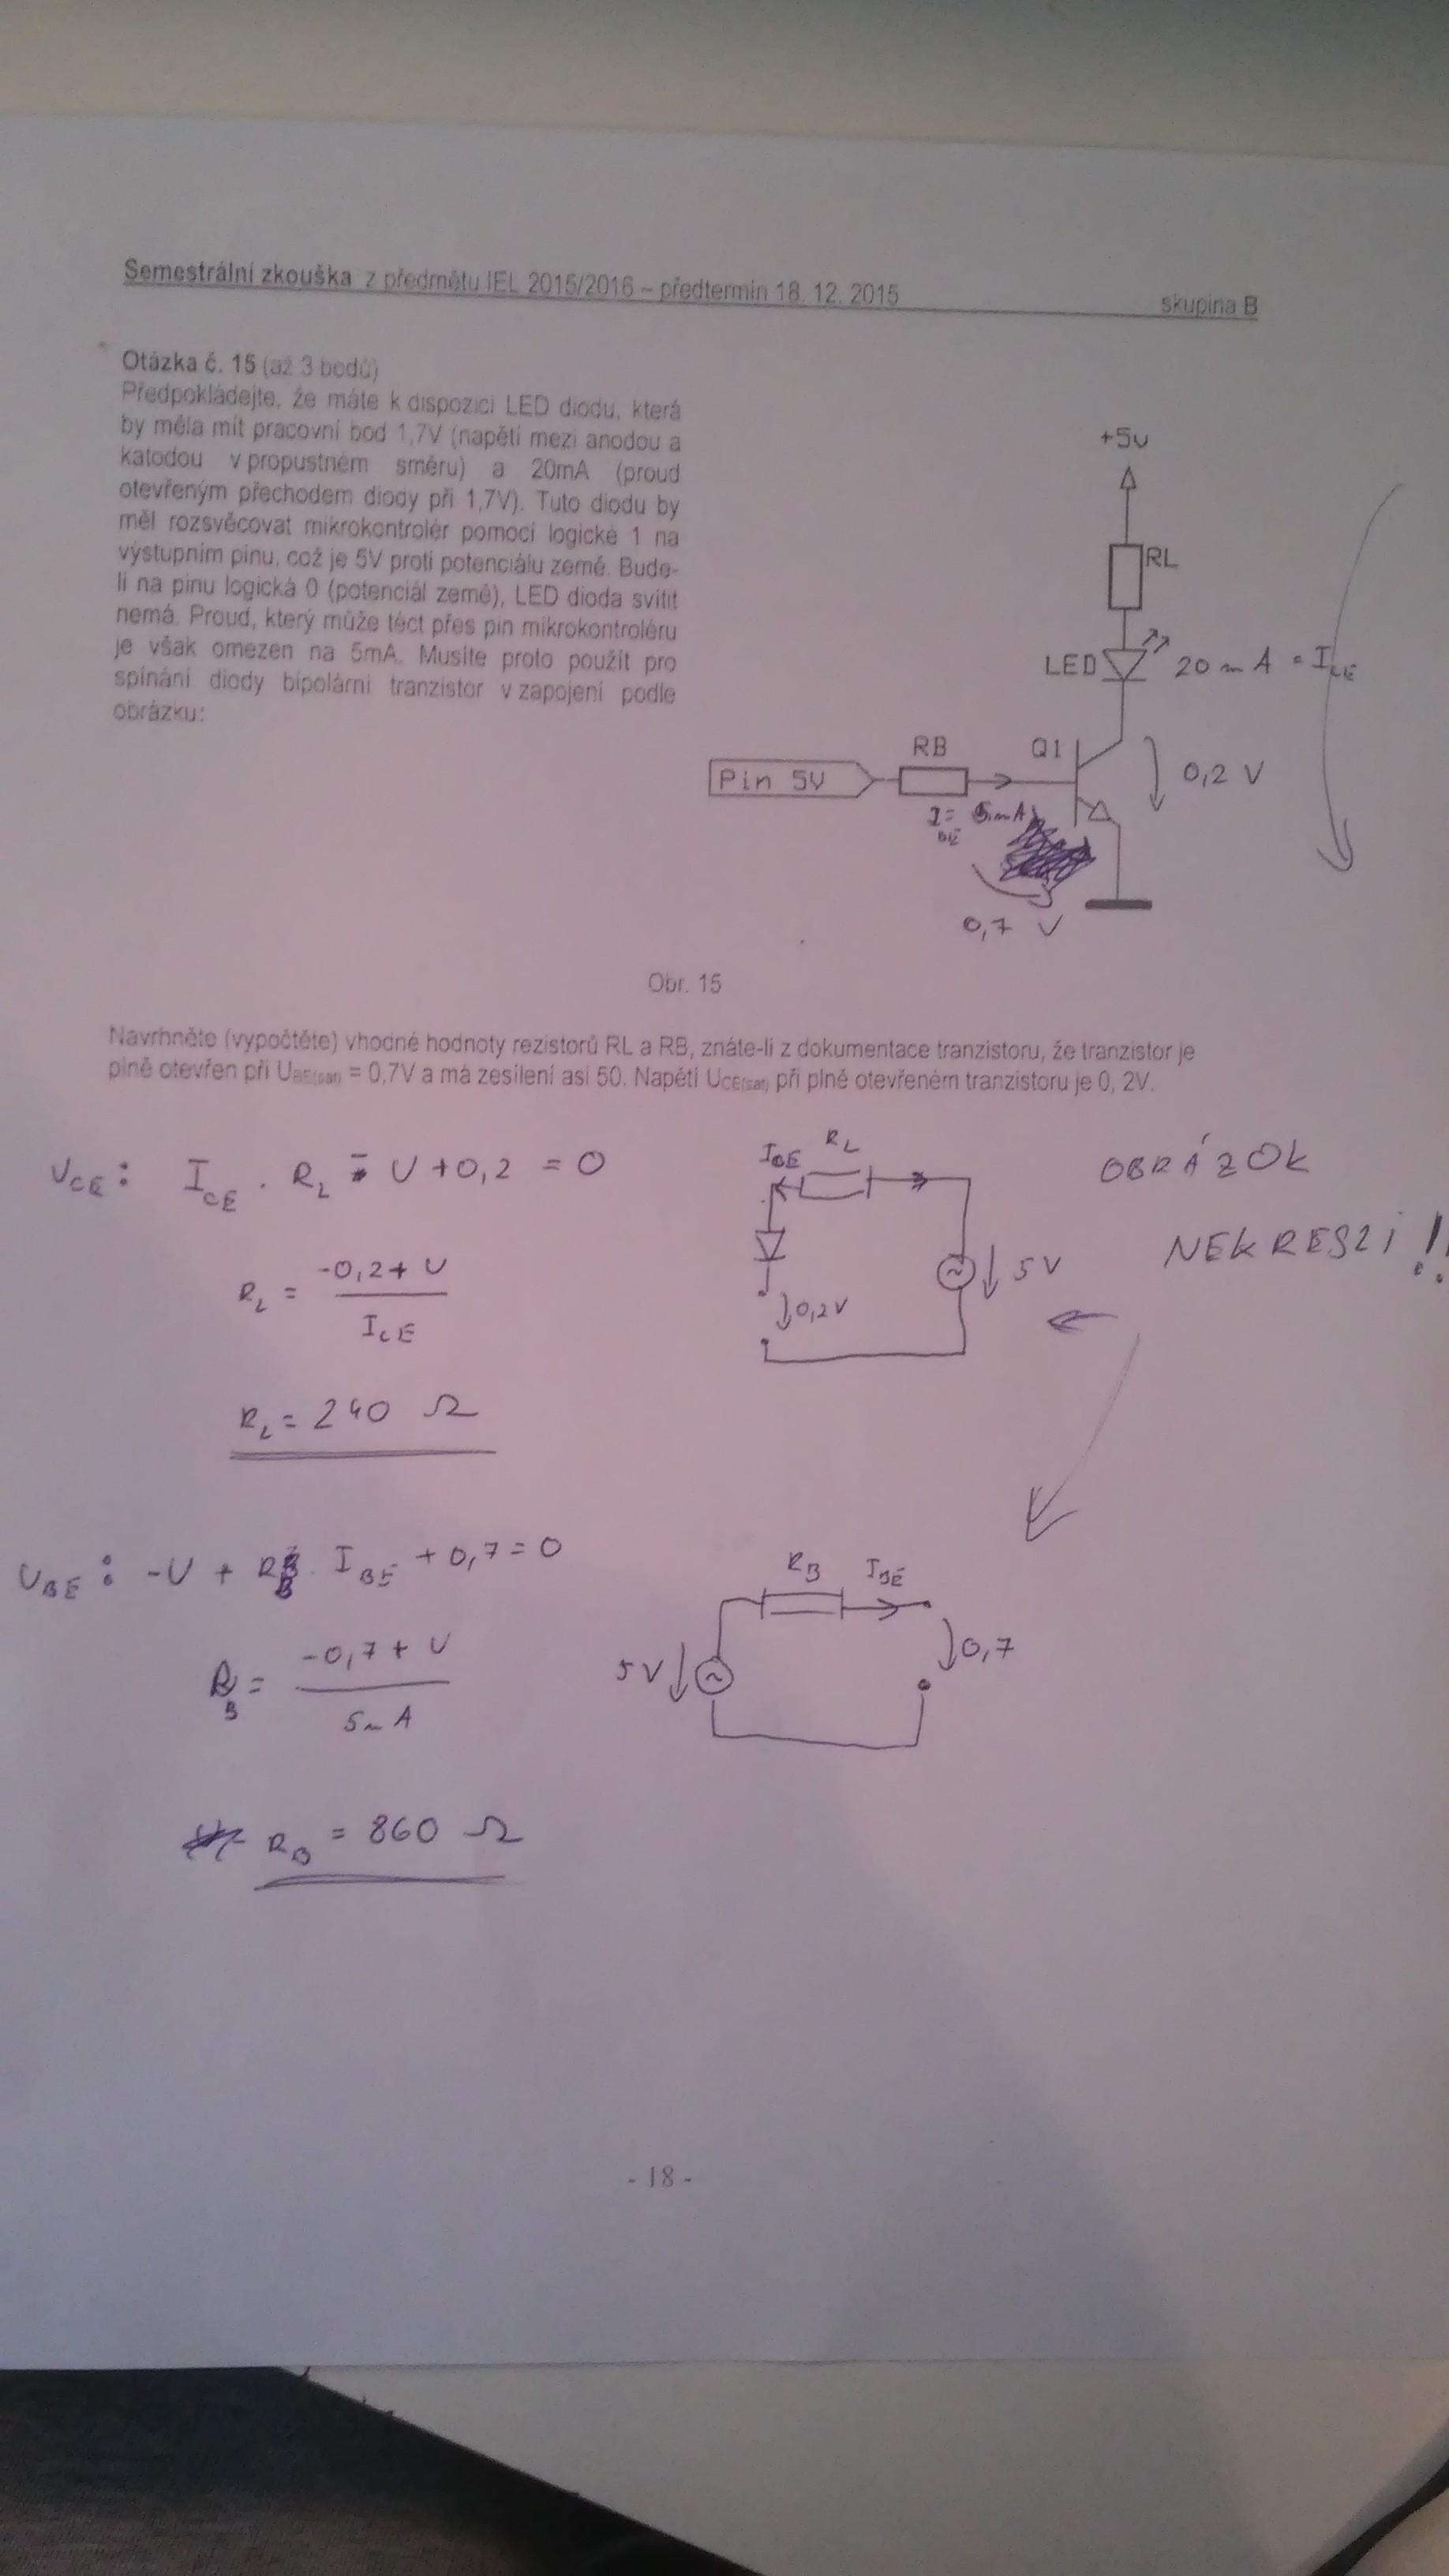 Semestrální zkouška z předmětu IEL 2015/2016 – předtermín 18. 12. 2015 skupina B
Otázka č. 15 (až 3 bodů)
Předpokládejte, že máte k dispozici LED diodu, která
by měla mít pracovní bod 1,7V (napětí mezi anodou a
katodou v propustném směru) a 20mA (proud
otevřeným přechodem diody při 1,7V). Tuto diodu by
měl rozsvěcovat mikrokontrolér pomocí logické 1 na
výstupním pinu, což je 5V proti potenciálu země. Bude-
li na pinu logická 0 (potenciál země), LED dioda svítit
nemá. Proud, který může téct přes pin mikrokontroléru
je však omezen na 5mA. Musíte proto použít pro
spínání diody bipolární tranzistor v zapojení podle
obrázku:
+5v
RL
LED 20 mA = ICE
RB Q1
Pin 5V
0,2 V
I = 5mA
BE
0,7 V
Obr. 15
Navrhněte (vypočtěte) vhodné hodnoty rezistorů RL a RB, znáte-li z dokumentace tranzistoru, že tranzistor je
plně otevřen při UBE(sat) = 0,7V a má zesílení asi 50. Napětí UCE(sat) při plně otevřeném tranzistoru je 0, 2V.
UCE: ICE . RL - U + 0,2 = 0
ICE RL
OBRÁZOK
NEKRESZI!!
RL = -0,2 + U / ICE
5V
0,2V
RL = 240 Ω
UBE: -U + RB . IBE + 0,7 = 0
RB IBE
RB = -0,7 + U / 5mA
5V
0,7
RB = 860 Ω
- 18 -